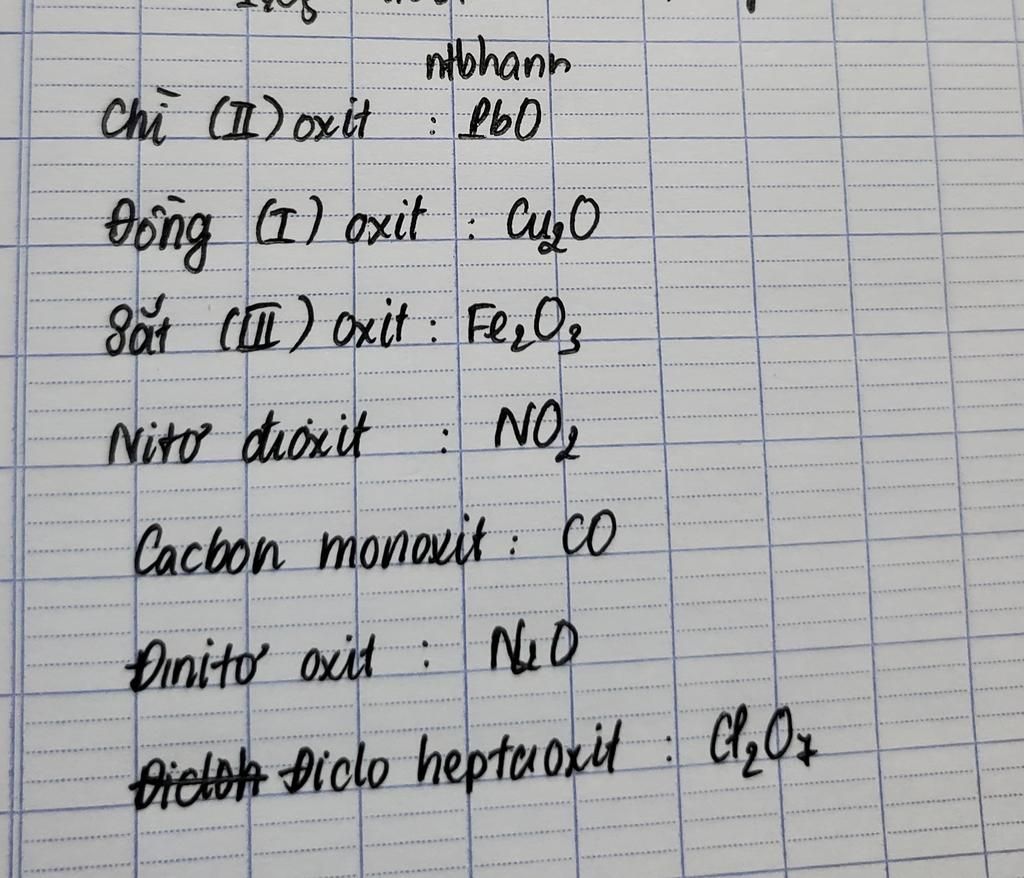 ntbhanh
Chì (II) oxit : PbO
Đồng (I) oxit : Cu₂O
Sắt (III) oxit : Fe₂O₃
Nitơ đioxit : NO₂
Cacbon monoxit : CO
Đinitơ oxit : N₂O
Điclo heptaoxit : Cl₂O₇